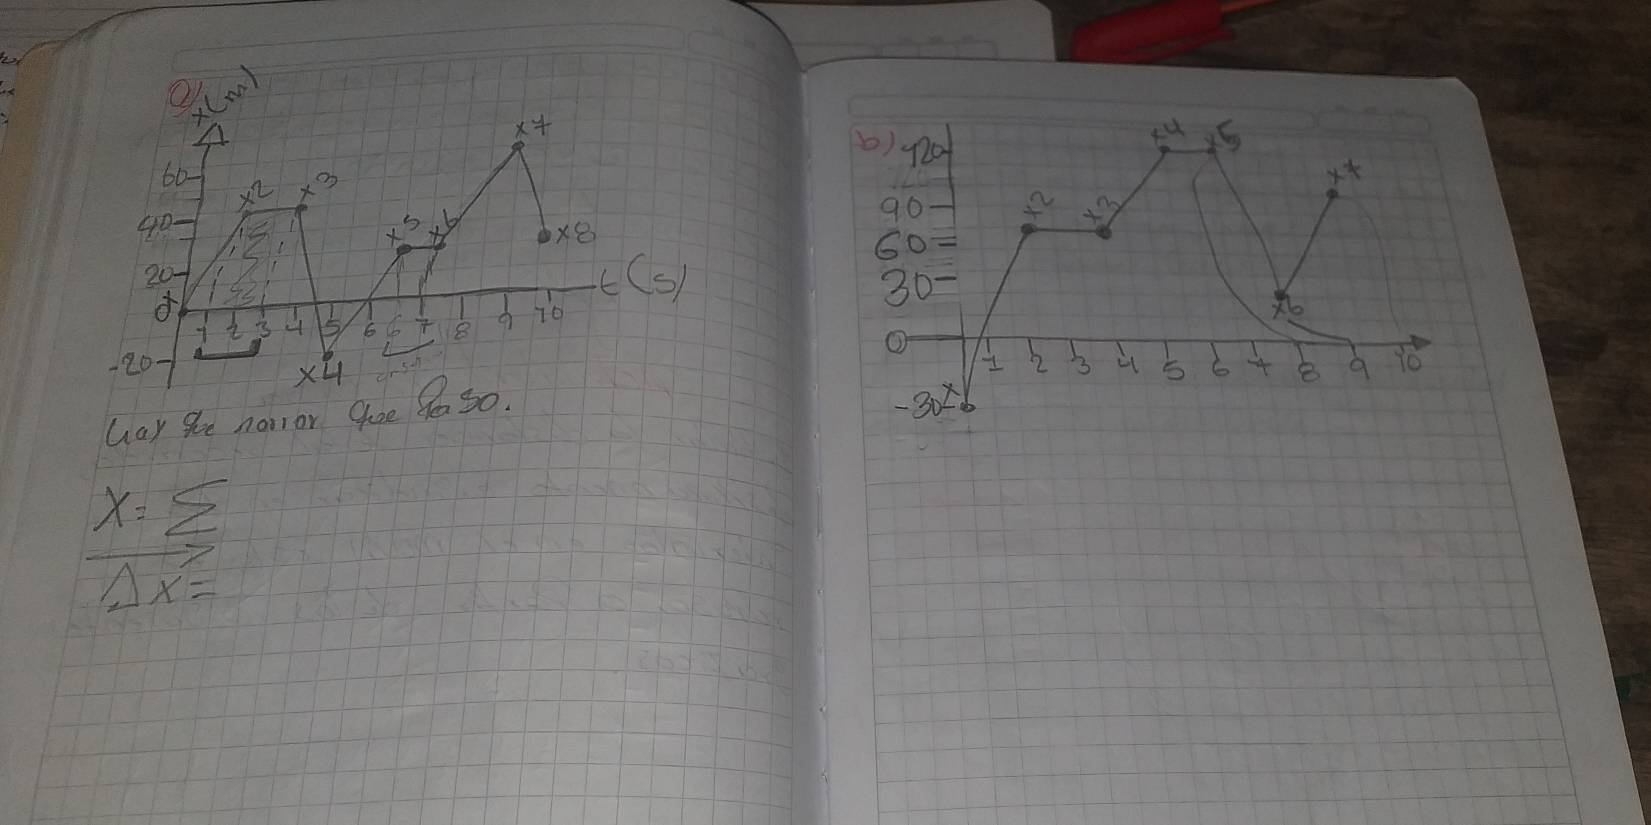 a)
x(m)
60
40
20
0
-20
x2
x3
x4
x5
x6
x7
x8
1 2 3 4 5 6 6 7 8 9 10
t(s)
Hay que narrar que Paso.
X = Σ
Δx =
b)
120
90
60
30
0
-30
x
x2
x3
x4
x5
x6
x7
1 2 3 4 5 6 7 8 9 10